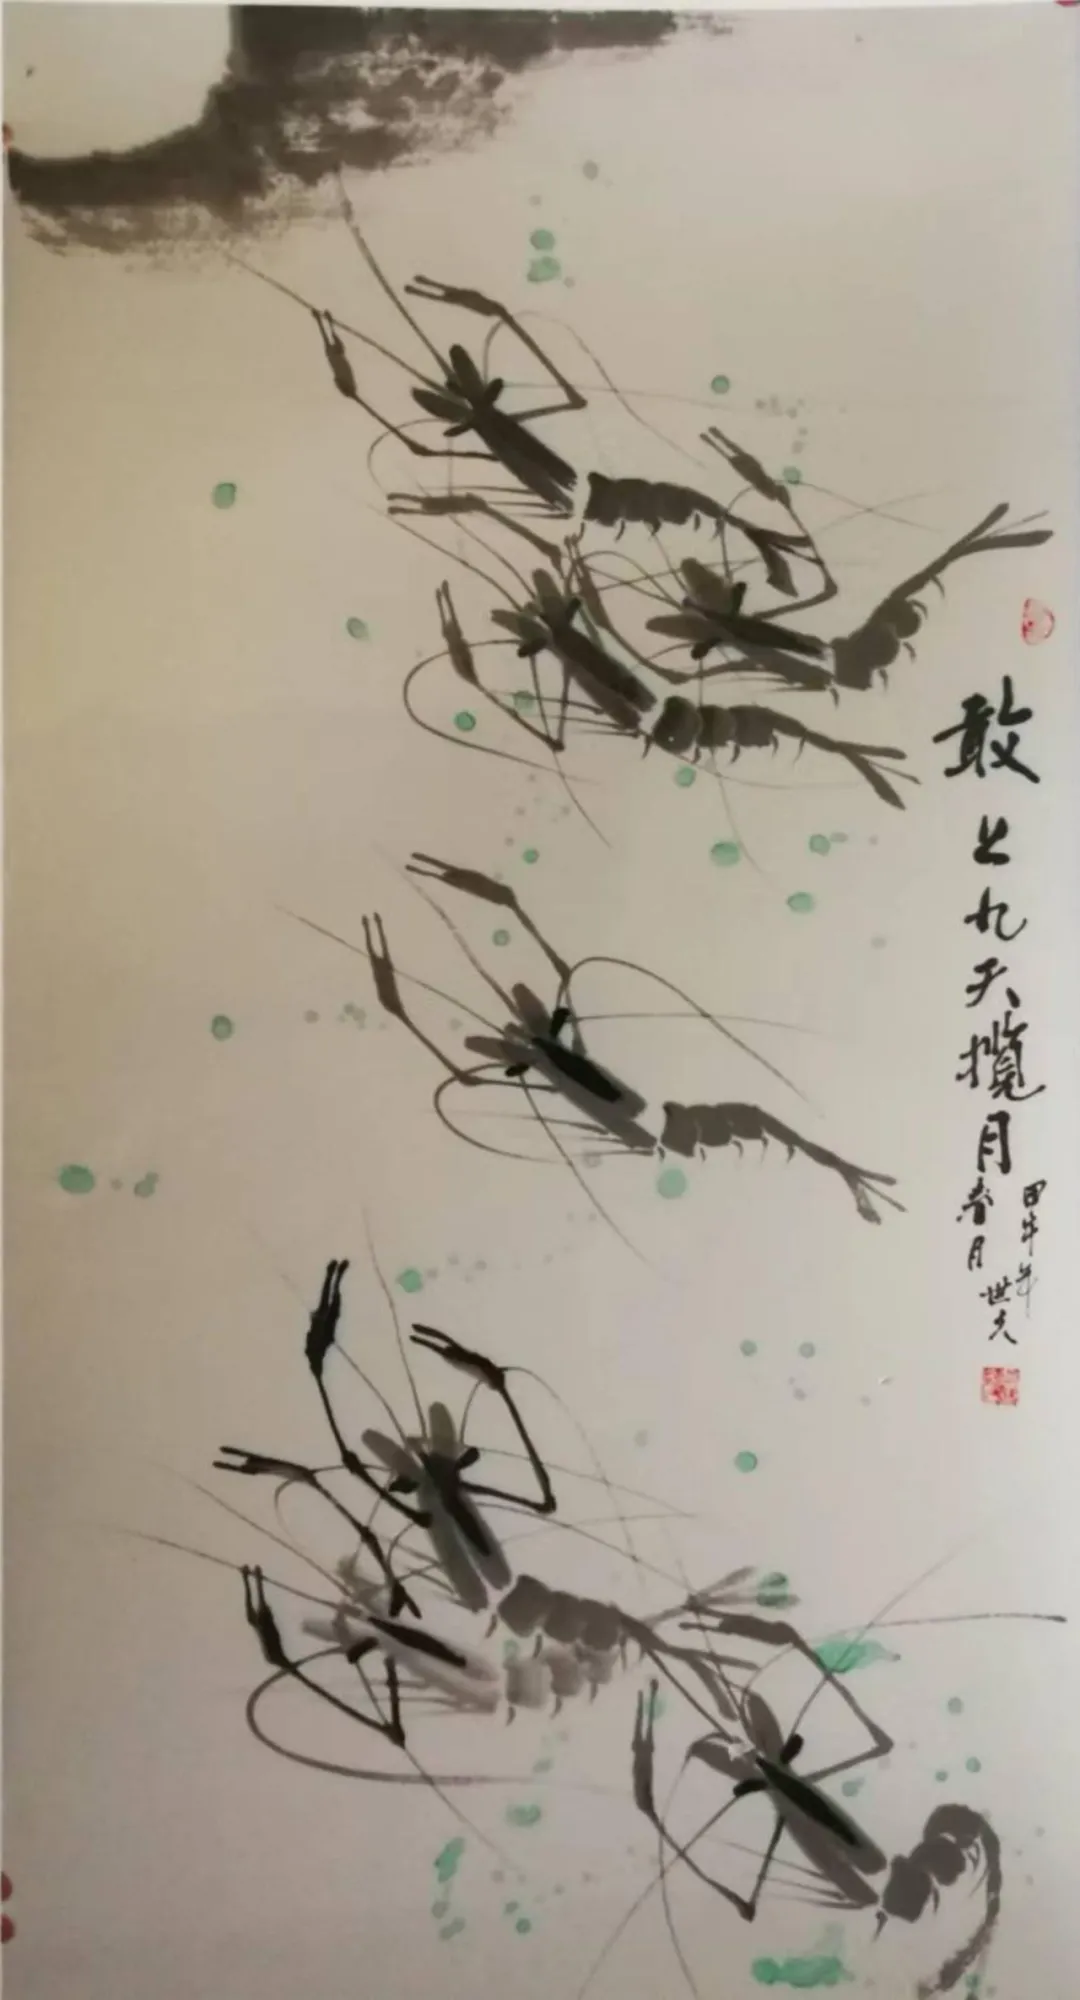 敢上九天揽月
甲午年
春月
世夫